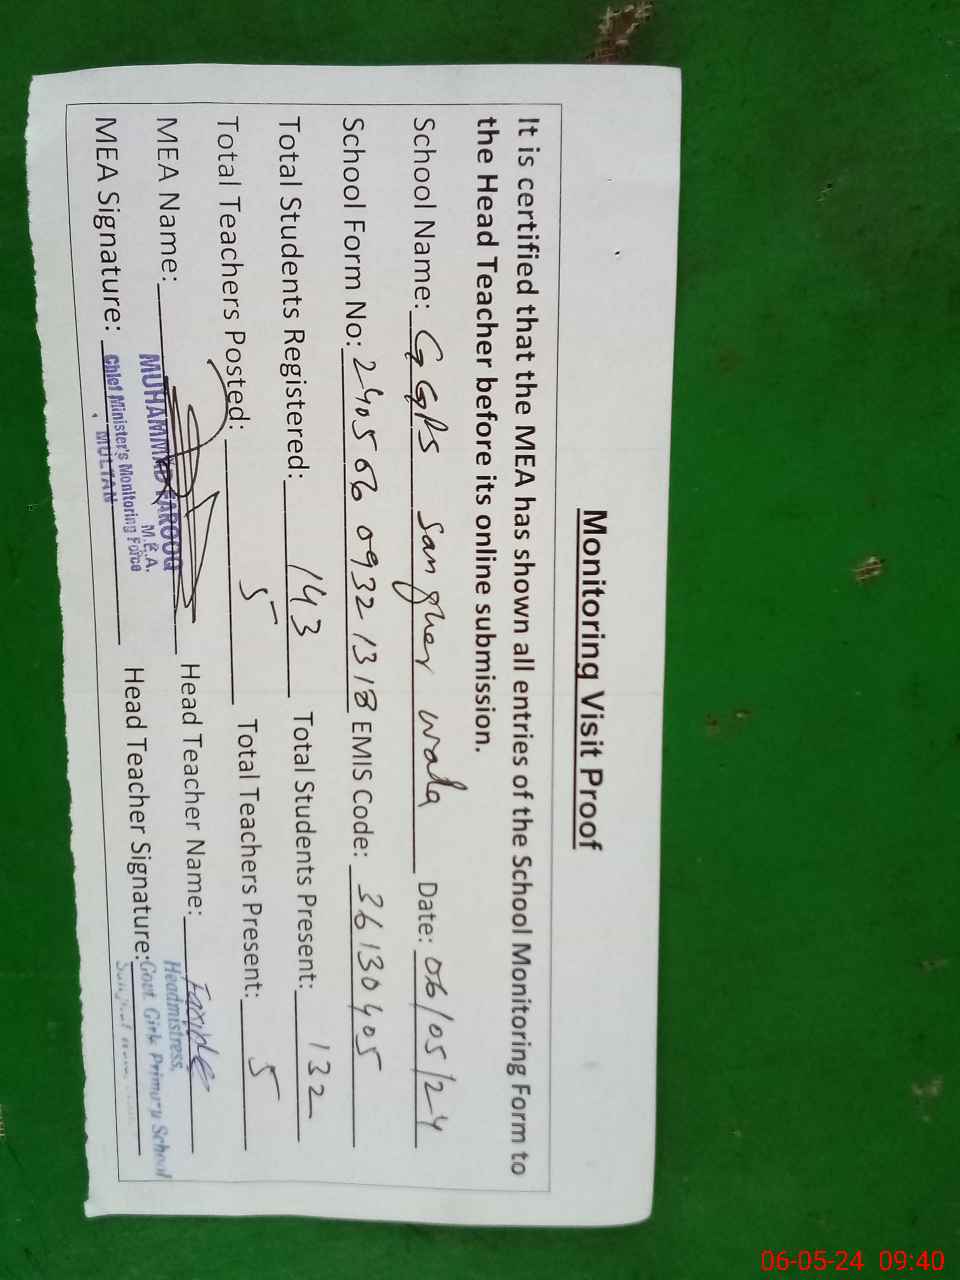 Monitoring Visit Proof
It is certified that the MEA has shown all entries of the School Monitoring Form to
the Head Teacher before its online submission.
School Name: GGPS Sangher wala Date: 06/05/24
School Form No: 24056609321318 EMIS Code: 36130405
Total Students Registered: 143 Total Students Present: 132
Total Teachers Posted: 5 Total Teachers Present: 5
MEA Name: Head Teacher Name:
MUHAMMAD FAROOQ
M.E.A.
Headmistress,
MEA Signature: Chief Minister's Monitoring Force Head Teacher Signature: Govt. Girls Primary School
MULTAN
06-05-24 09:40